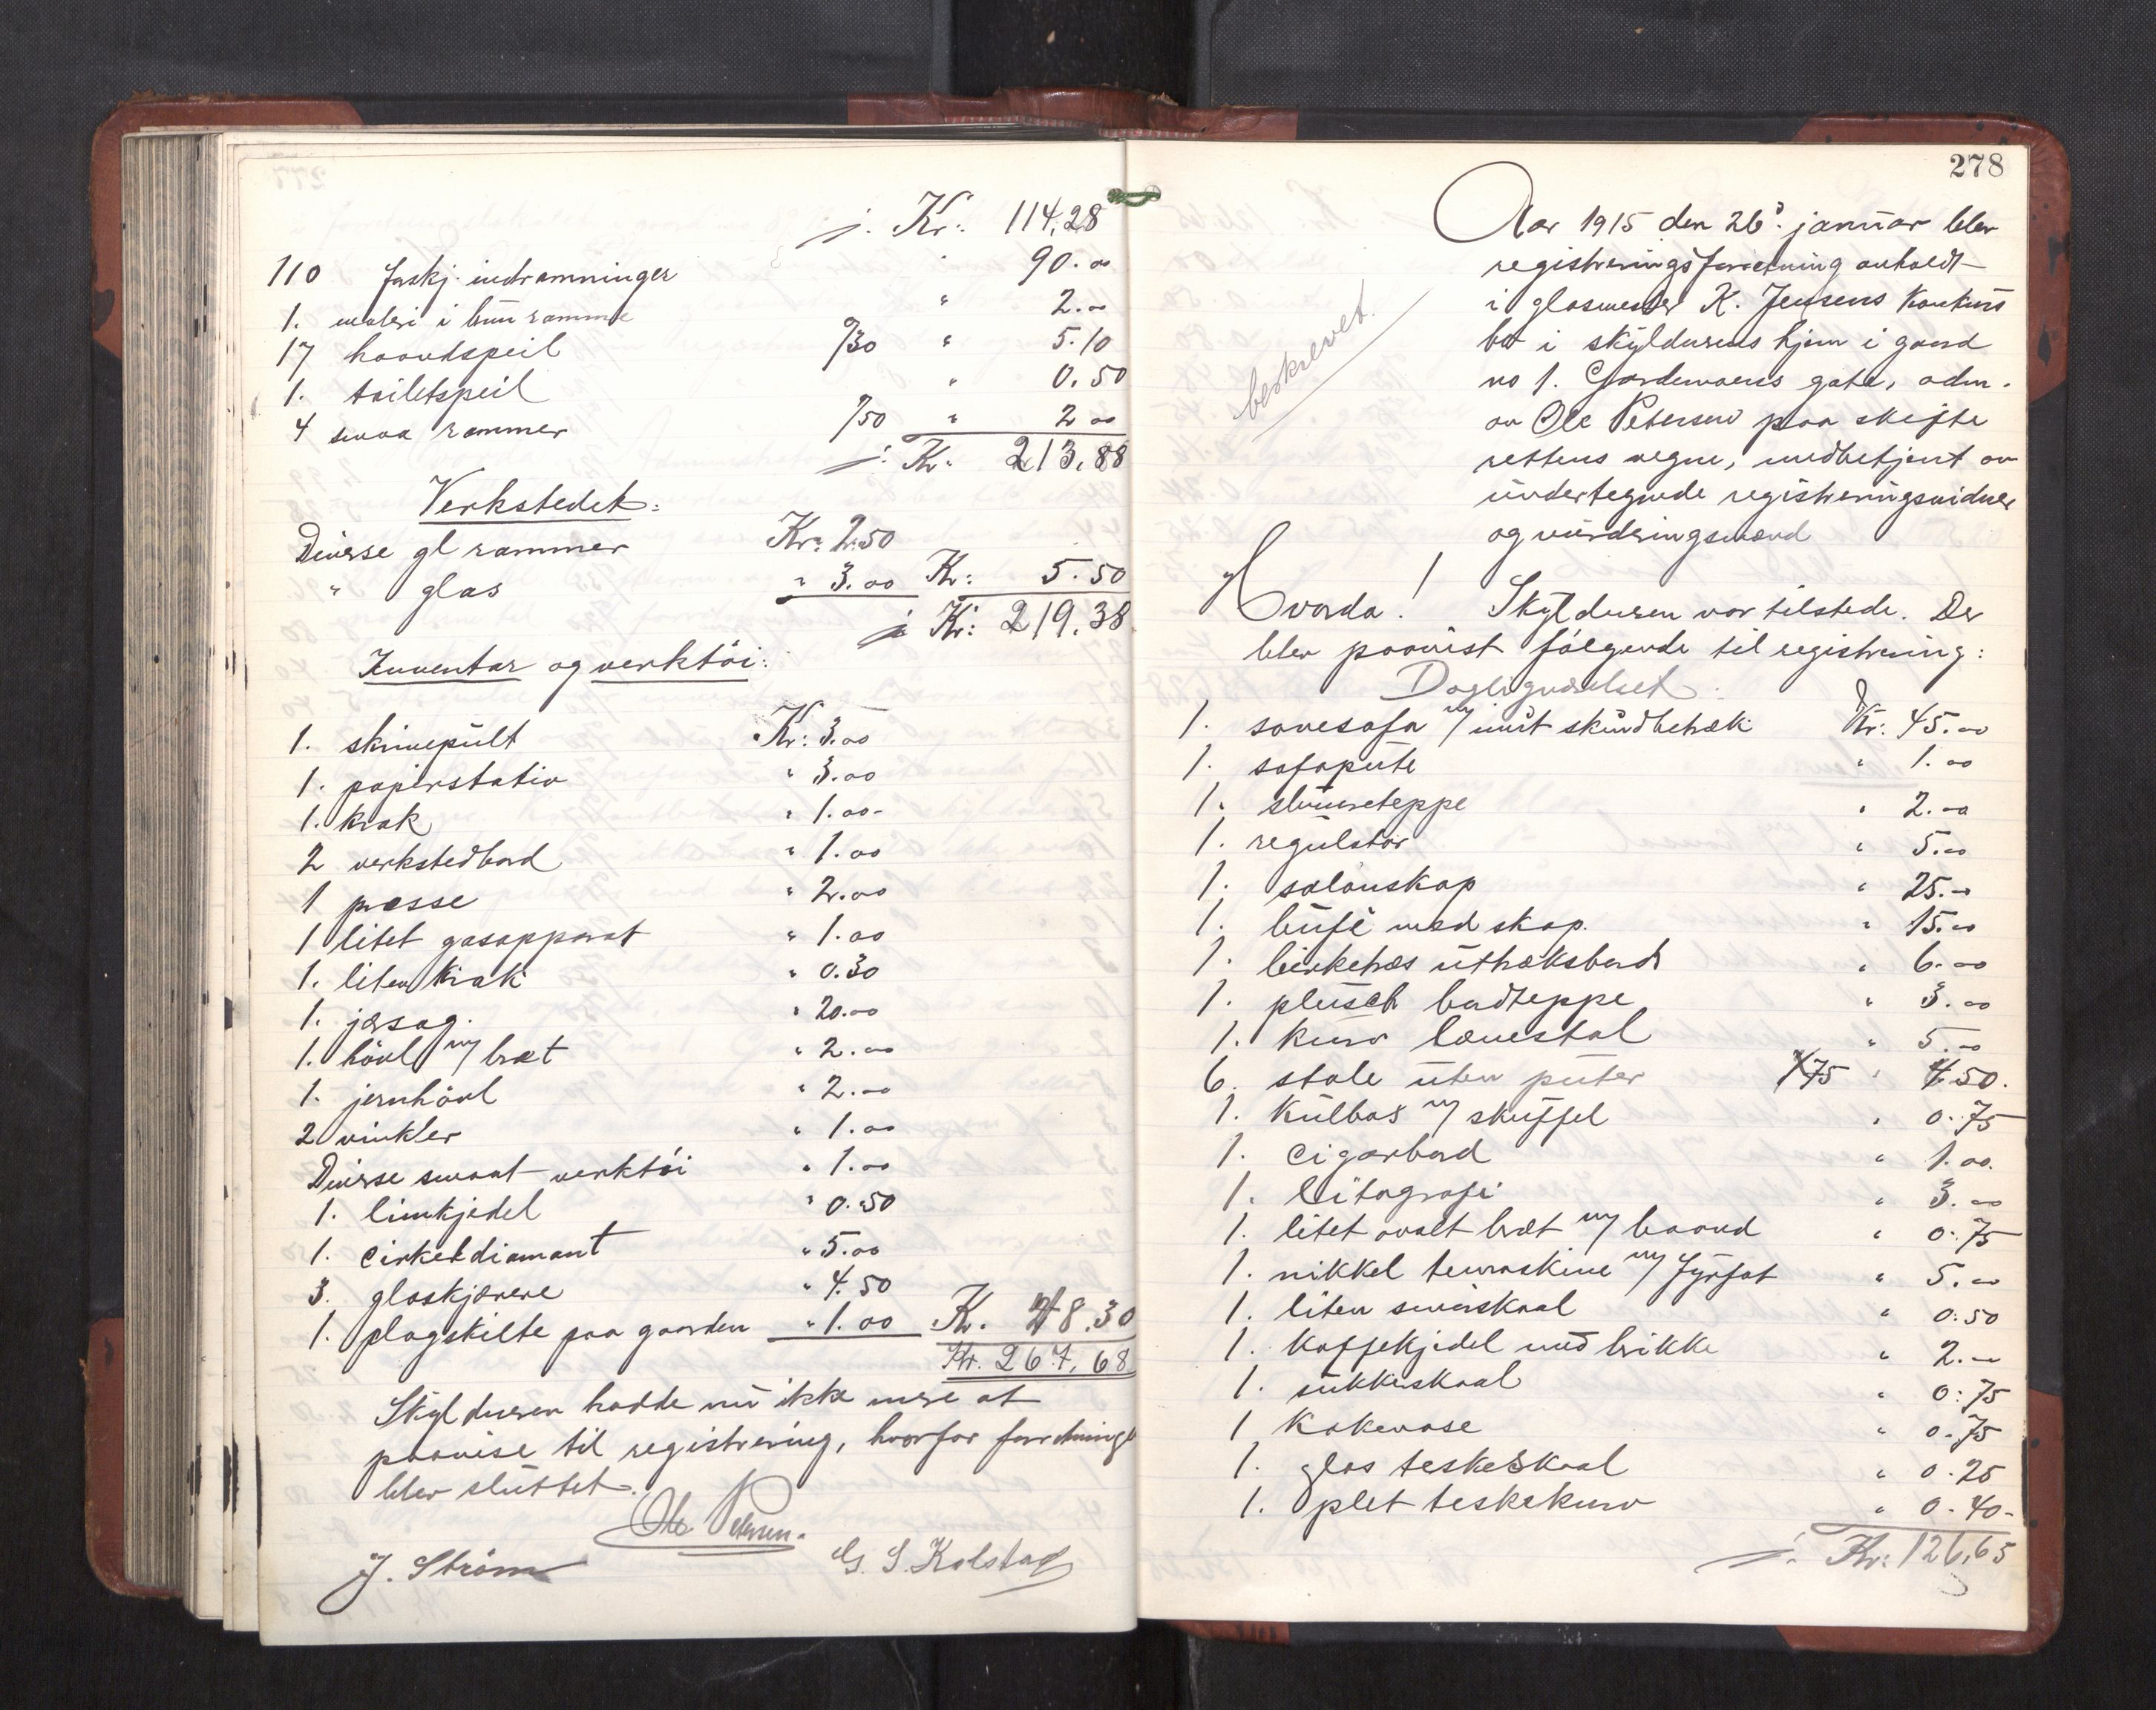 j. Kr: 114,28
110 forskj. indramninger " 90.00
1. maleri i brun ramme " 2.00
17 haandspeil 0/30 " 5.10
1. toiletspeil " 0.50
4 smaa rammer 0/50 " 2 00
j. Kr. 213,88
Verkstedet:
Diverse gl rammer Kr: 2.50
" glas " 3.00 Kr: 5.50
j Kr: 219,38
Inventar og verktöi:
1. skrivepült Kr: 3.00
1. papirstativ " 3.00
1. krak " 1.00-
2 verkstedbord " 1.00
1 presse " 2.00
1 litet gasapparat " 1.00
1. liten krak " 0.30
1. jersag. " 20.00
1. hövl m/ bræt " 2.00
1. jernhövl " 2.00
2 vinkler " 1.00
Diverse smaat verktöi " 1.00
1. limkjedel " 0.50
1. cirkeldiamant " 5.00
3. glaskjærere " 4.50
1. plagskilte paa gaarden " 1.00 Kr. 48.30
Kr. 267,68
Skyldneren hadde nü ikke mere at
paavise til registrering, hvorfor forretninge
blev slüttet.
Ole Petersen.
J. Ström G. S. Kolstad
278
Aar 1915 den 26. janüar blev
registreringsforretning avholdt
i glasmester K. Jensens konkürs
bo i skyldnerens hjem i gaard
no 1. gate, adm.
av Ole Petersen paa skifte
rettens vegne, medbetjent av
ündertegnede registreringsvidner
og vürderingsmænd
beskrevet.
Hvorda! Skyldneren var tilstede. Der
blev paavist følgende til registrering:
Dagligværelset:
1. sovesofa m/ imit skindbetræk Kr: 45.00
1. sofapüte " 1.00
1. slümreteppe " 2.00
1. regülator " 5.00
1. salonskap " 25.00
1. büfé med skap. " 15.00
1. birketræs üttræksbord " 6.00
1. plüsch bordteppe " 3.00
1. kürv lænestol " 5.00
6. stole üten püter 75 " 4.50.
1. külbox m/ skuffel " 0.75
1. cigarbord " 1.00.
1. litografi " 3.00
1. litet ovalt bræt m/ baand " 0.75
1. nikkel temaskine m/ fyrfat " 5.00
1. liten smörskaal " 0:50
1. kaffekjedel med brikke " 2.00
1. sükkerskaal " 0:75
1 kakevase " 0.75
1. glas teskeskaal " 0.25
1. plet teskekürv " 0.40-
j. Kr: 126,65